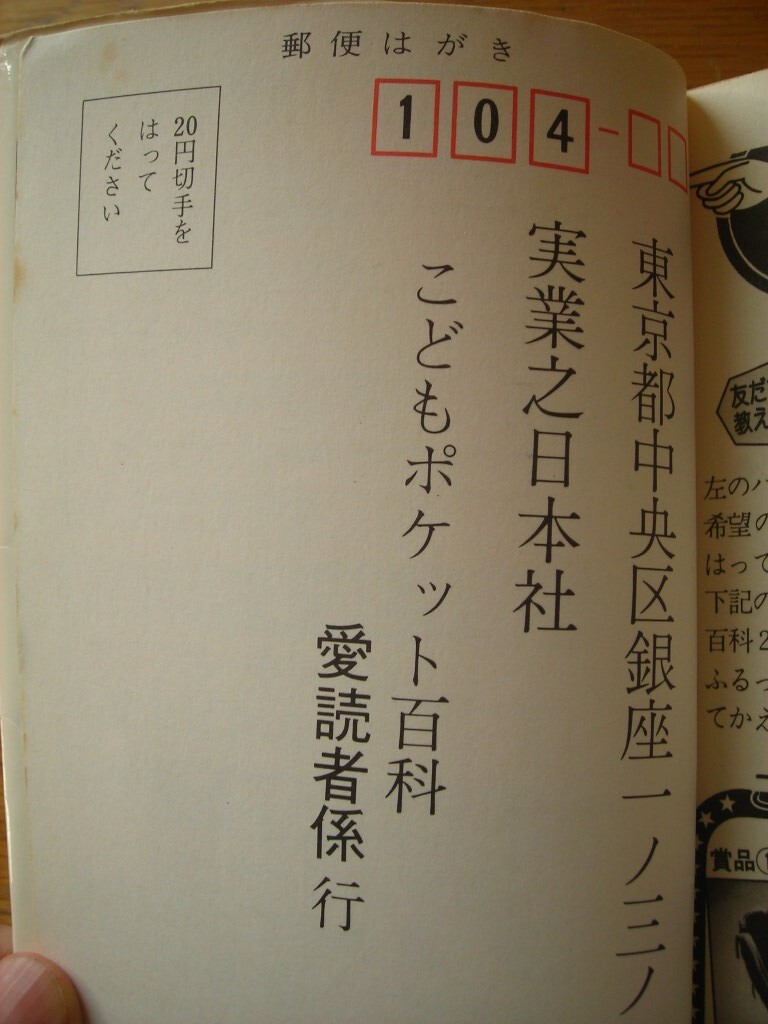 郵便はがき
104-
東京都中央区銀座一ノ三ノ
実業之日本社
こどもポケット百科
愛読者係行
20円切手を
はって
ください
友だ
教え
左のハ
希望の
はって
下記の
百科2
ふるっ
てかえ
賞品①